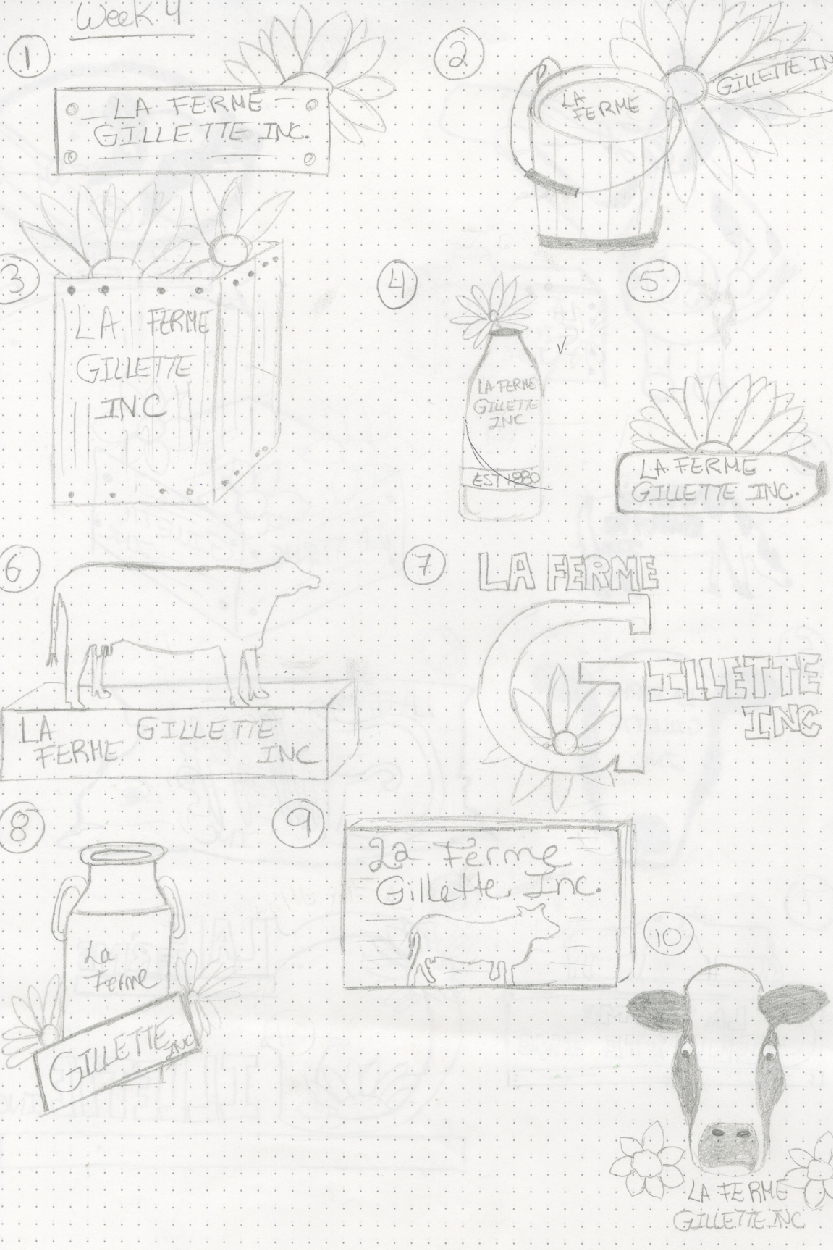 Week 4
1
LA FERME
GILLETTE INC.
2
LA
FERME
GILLETTE IN
3
LA FERME
GILLETTE
INC
4
LA FERME
GILLETTE
INC
EST 1980
5
LA FERME
GILLETTE INC.
6
LA
FERME
GILLETTE
INC
7
LA FERME
GILLETTE
INC
8
La
Ferme
GILLETTE INC
9
La Ferme
Gillette Inc.
10
LA FERME
GILLETTE INC